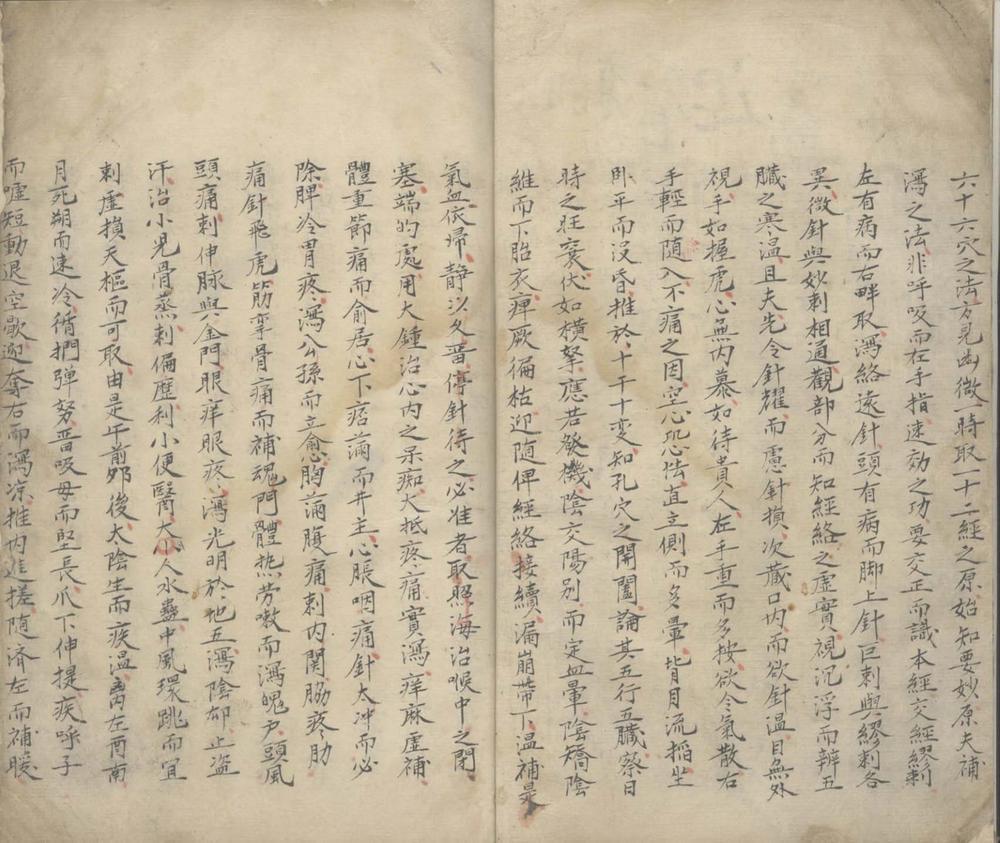 六十六穴之法方見幽微一時取一十二經之原始知要妙原夫補
瀉之法非呼吸而在手指速効之功要交正而識本經交經繆刺
左有病而右畔取瀉絡遠針頭有病而脚上針巨刺與繆刺各
異微針與妙刺相通觀部分而知經絡之虛實視沉浮而辨五
臟之寒温且夫先令針耀而慮針損次藏口内而欲針温目無外
視手如握虎心無内慕如待貴人左手重而多按欲令氣散右
手輕而随入不痛之因空心恐怯直立側而多暈背目流搯坐
卧平而没昏推於十干十變知孔穴之開闔論其五行五臟蔡日
時之旺衰伏如横弩應若發機陰交陽别而定血暈陰矯陰
維而下胎衣痺厥徧枯迎随俾經絡接續漏崩帶下温補是
氣血依帰静以久畱停針待之必准者取照海治喉中之閉
塞端的處用大鍾治心内之呆痴大抵疼痛實瀉痒麻虛補
體重節痛而俞居心下痞滿而井主心脹咽痛針太冲而必
除脾冷胃疼瀉公孫而立愈胸滿腹痛刺内関脇疼肋
痛針飛虎筋挛骨痛而補魂門體热劳嗽而瀉魄户頭風
頭痛刺伸脉與金門眼痒眼疼瀉光明於地五瀉陰郄止盗
汗治小児骨蒸刺偏歷利小便醫大人水蠱中風環跳而冝
刺虛損天樞而可取由是午前夘後太陰生而疾温离左酉南
月死朔而速冷循捫弹努畱吸母而堅長爪下伸提疾呼子
而嘘短動退空歇迎奪右而瀉凉推内進搓随济左而補暖